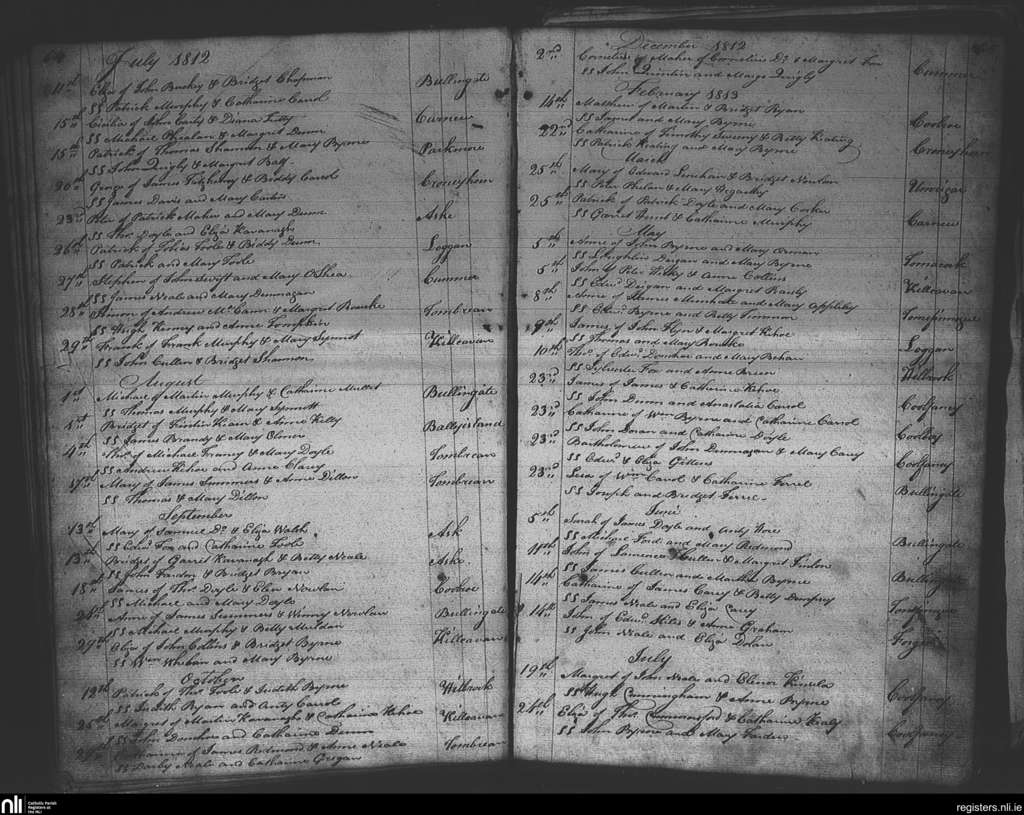 64
July 1812
11th Eliza of John Buckey & Bridget Chapman Bullingate
SS Patrick Murphy & Catharine Carrol
15th Cicilia of John Early & Diana Tutty Carnew
SS Michael Phealan & Margret Dunn
15th Patrick of Thomas Shannon & Mary Byrne Parkmore
SS John Quigly & Margret Ball
20th George of James Fitzhenry & Biddy Carrol Croneyhorn
SS James Davis and Mary Carter
23rd Peter of Patrick Maher and Mary Dunn Aske
SS Thos Doyle and Eliza Kavanagh
26th Patrick of Tobias Toole & Biddy Dunn Loggan
SS Patrick and Mary Toole
27th Stephen of John Swift and Mary O'Shea Cummer
SS James Neale and Mary Dunnagan
28th Simon of Andrew McCann & Margret Rourke Tombrean
SS Hugh Kenny and Anne Tompkin
29th Frank of Frank Murphy & Mary Synnot Killcavan
SS John Cullen & Bridget Shannon
August
1st Michael of Martin Murphy & Catharine Mullet Bullingate
SS Thomas Murphy & Mary Synnott
1st Bridget of Fintin Kiain & Anne Kelly Ballyisland
SS James Brandy & Mary Connor
4th Thos of Michael Franey & Mary Doyle Tombrean
SS Andrew Kehoe and Anne Clancy
17th Mary of James Summers & Anne Dillon Tombrean
SS Thomas & Mary Dillon
September
13th Mary of Samuel Do & Eliza Walsh Ask
SS Edwd Fox and Catharine Toole
13th Bridget of Garret Kavanagh & Betty Neale Aske
SS John Fardon & Bridget Bryan
18th James of Thos Doyle & Elen Nowlan Coolroe
SS Michael and Mary Doyle
24th Anne of James Summers & Winny Nowlan Bullingate
SS Michael Murphy & Betty Muldan
29th Eliza of John Collins & Bridget Byrne Killcavan
SS Wm Whelan and Mary Byrne
October
12th Patrick of Thos Toole & Judith Byrne Wilbrook
SS Judith Ryan and Anty Carrol
25th Margret of Martin Kavanagh & Catharine Kehoe Killcavan
SS John Donohoe and Catharine Dunn
of James Redmond & Anne Neale Tombrean
SS Darby Neale and Catharine Gregan
December 1812
2nd Cornelius of Maher of Cornelius Do & Margret Fox Cummer
SS John Quinlin and Margt Quigly
February 1813
14th Matthew of Martin & Bridget Ryan Coolroe
SS and Mary Byrne
22nd Catharine of Timothy Sweeny & Betty Keating Croneyhorn
SS Patrick Keating and Mary Byrne
March
25th Mary of Edward Lenehan & Bridget Nowlan Umrigar
SS Peter Phelan & Mary Hogarthy
25th Patrick of Patrick Doyle and Mary Corker Carnew
SS Garret Hunt & Catharine Murphy
May
5th Anne of John Byrne and Mary Gorman Tomacork
SS Loughlin Deigan and Mary Byrne
5th John of Peter Tutty & Anne Collins Killcavan
SS Edwd Deigan and Margret Rardy
8th Anne of James Meenhan and Mary Appleby
SS Edwd Byrne and Betty Timmon
9th James of John Flyn & Margret Kehoe Loggan
SS Thomas and Mary Rourke
10th Thos of Edwd Donohoe and Mary Behan Wilbrook
SS Silvester Fox and Anne Breen
23rd James of James & Catharine Kehoe Coolfaney
SS John Dunn and Anastatia Carrol
23rd Catharine of Wm Byrne and Catharine Carrol Coolboy
SS John Doran and Catharine Doyle
23rd Bartholomew of John Dunnagan & Mary Carey Coolfaney
SS Edwd & Eliza Gittens
23rd of Wm Carrol & Catharine Ferrel Bullingate
SS Joseph and Bridget Ferrel
June
5th Sarah of James Doyle and Anty Hore Bullingate
SS Michael Ford and Mary Redmond
11th John of Laurence Cullen & Margret Finlon Bullingate
SS James Cullen and Martha Byrne
14th Catharine of James Carey & Betty Dempsey
SS James Neale and Eliza Carey
14th John of Edwd Stiles & Anne Graham
SS John Neale and Eliza Dolan
July
19th Margret of John Neale and Elinor Kinsela Coolfaney
SS Hugh Cunningham & Anne Byrne
24th Eliza of Thos Commonsford & Catharine Healy Coolfaney
SS John Byrne and Mary Fardon
nli
Catholic Parish
Registers at
the NLI
registers.nli.ie